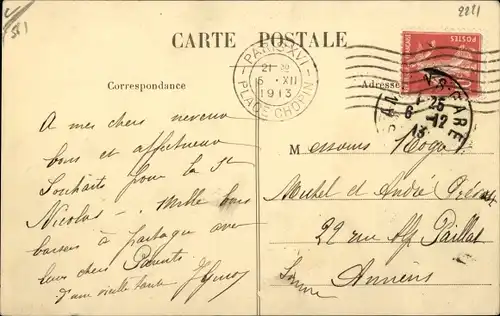 2211
CARTE POSTALE
Correspondance
Adresse
PARIS XVI
21
5 XII
1913
PLACE CHOPIN
POSTES
25
6-12
13
A mes chers neveux
bons et affectueux
Souhaits pour la St
Nicolas - Mille bons
baisers à partager avec
leurs chers Parents
d'une vieille tante
Messieurs
Michel et André
22 rue Paillat
Somme Amiens